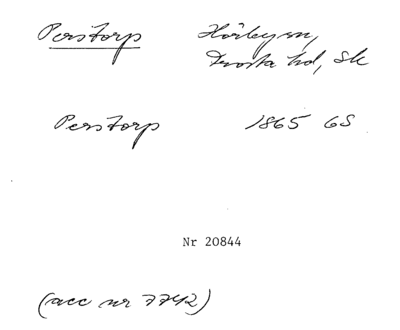 Perstorp Hörby sn,
Frosta hd, Sk
Perstorp 1865 GS
Nr 20844
(acc nr 7742)